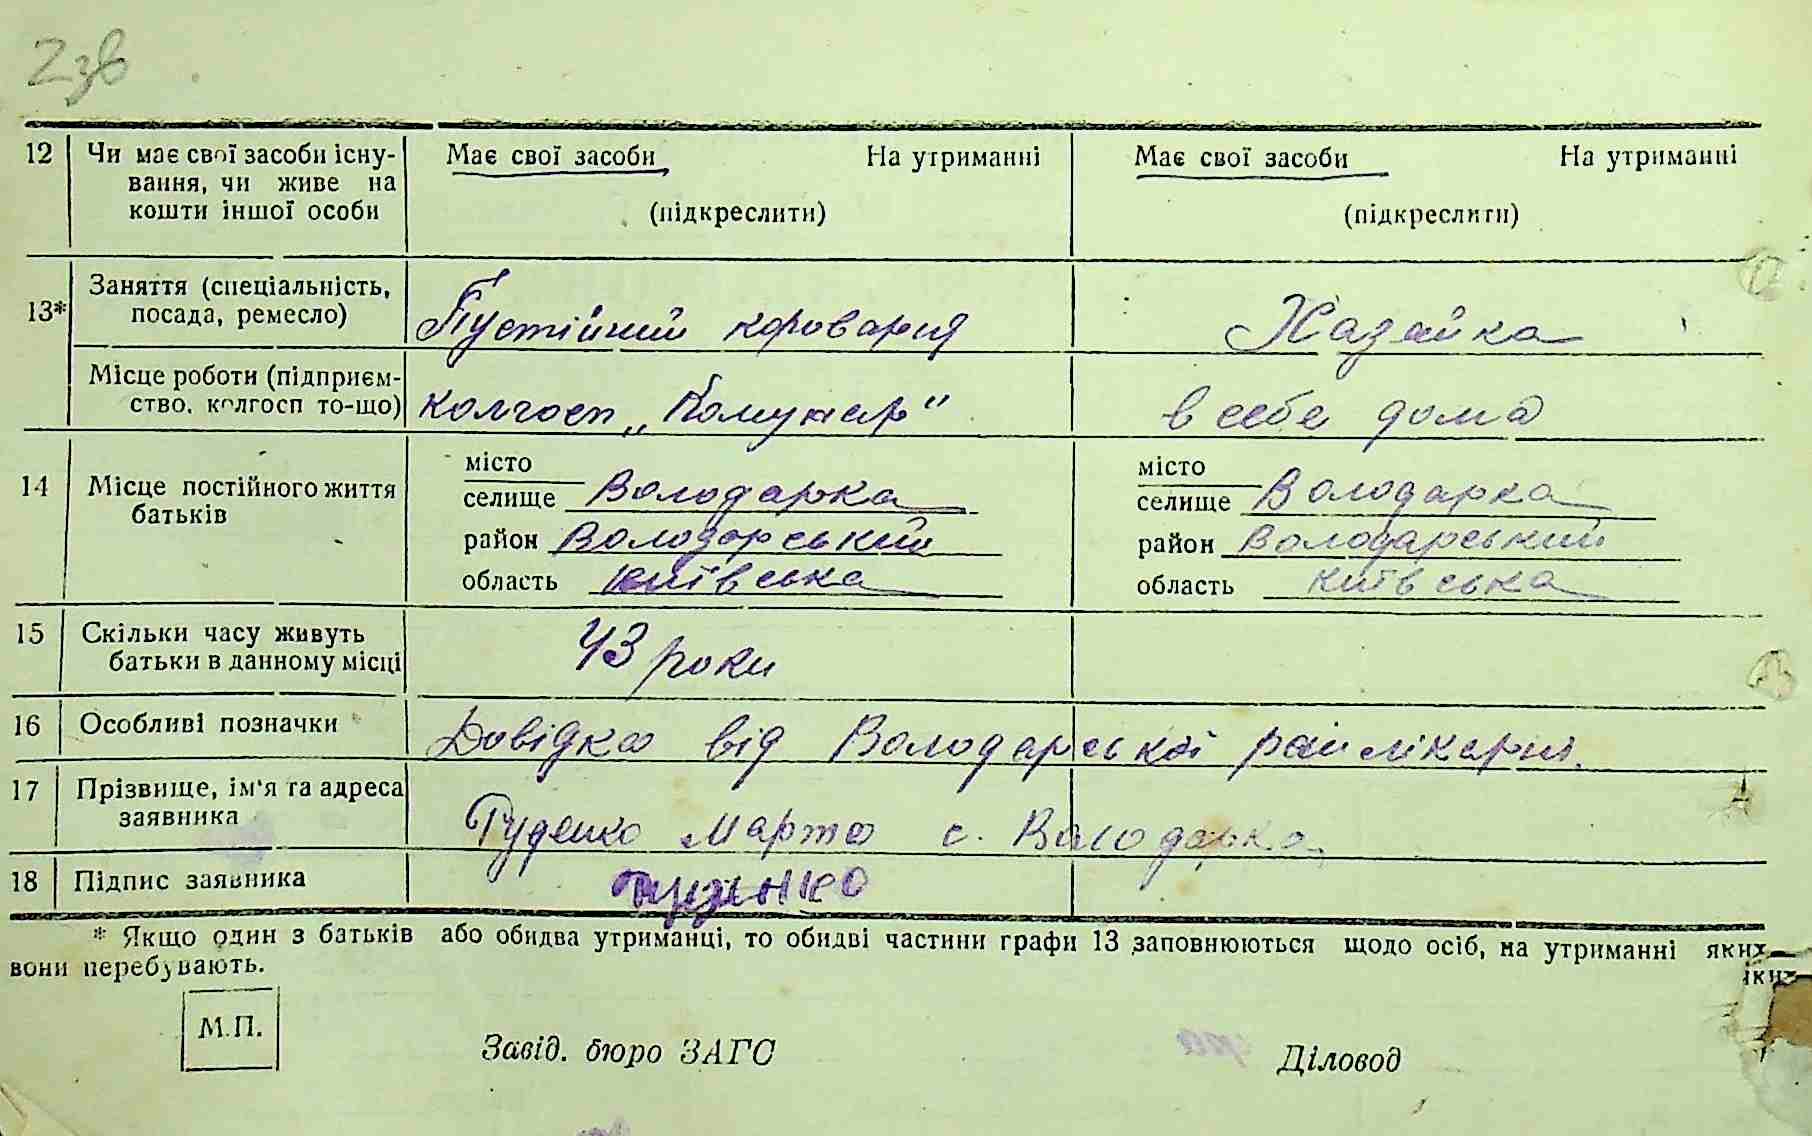 2зв
12 Чи має свої засоби існу- Має свої засоби На утриманні Має свої засоби На утриманні
вання, чи живе на
кошти іншої особи (підкреслити) (підкреслити)
13* Заняття (спеціальність,
посада, ремесло) короварня Хазайка
Місце роботи (підприєм-
ство, колгосп то-що) колгосп „Комунар" в себе дома
14 Місце постійного життя
батьків
місто місто
селище Володарка селище Володарка
район Володарський район Володарський
область київська область київська
15 Скільки часу живуть
батьки в данному місці 43 роки
16 Особливі позначки Довідка від Володарської райлікарні.
17 Прізвище, ім'я та адреса
заявника Руденко Марта с. Володарка
18 Підпис заявника
* Якщо один з батьків або обидва утриманці, то обидві частини графи 13 заповнюються щодо осіб, на утриманні яких
вони перебувають.
М.П.
Завід. бюро ЗАГС Діловод